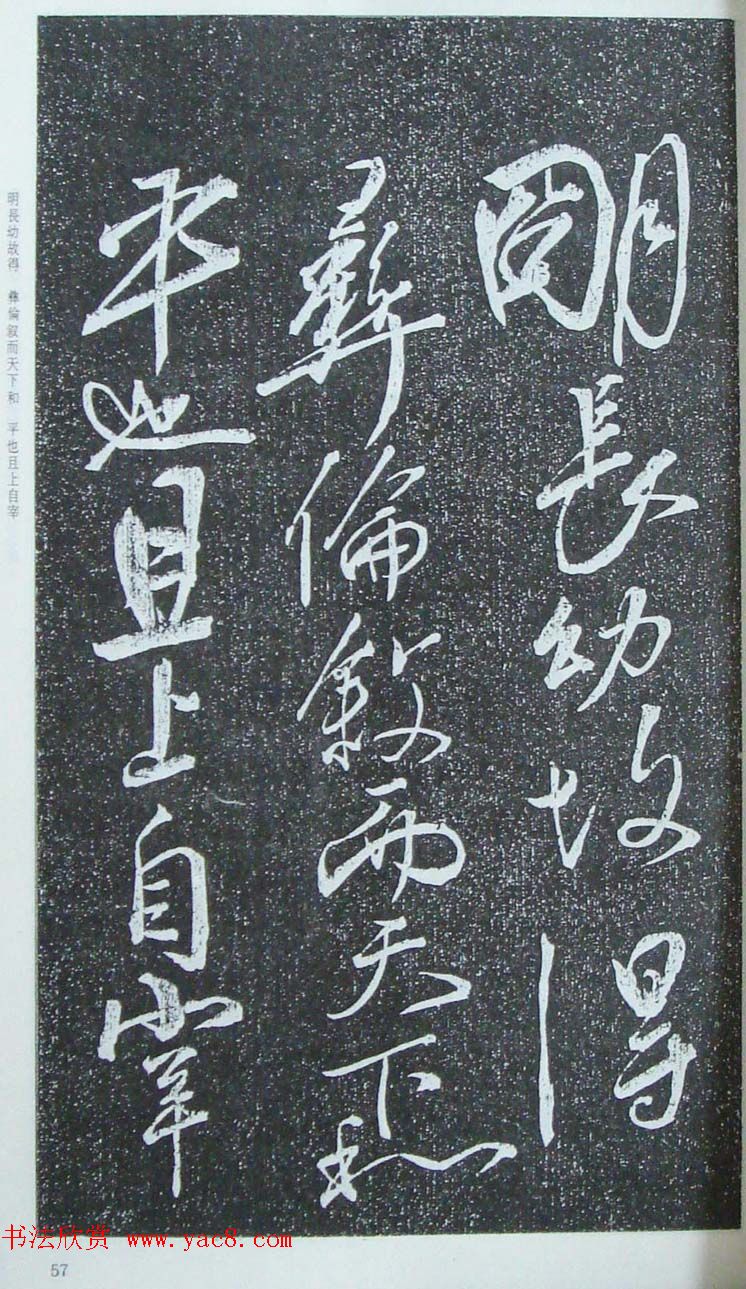 明長幼故得
彝倫敘而天下和
平也且上自宰
明長幼故得 彝倫叙而天下和 平也且上自宰
书法欣赏 www.yac8.com
57